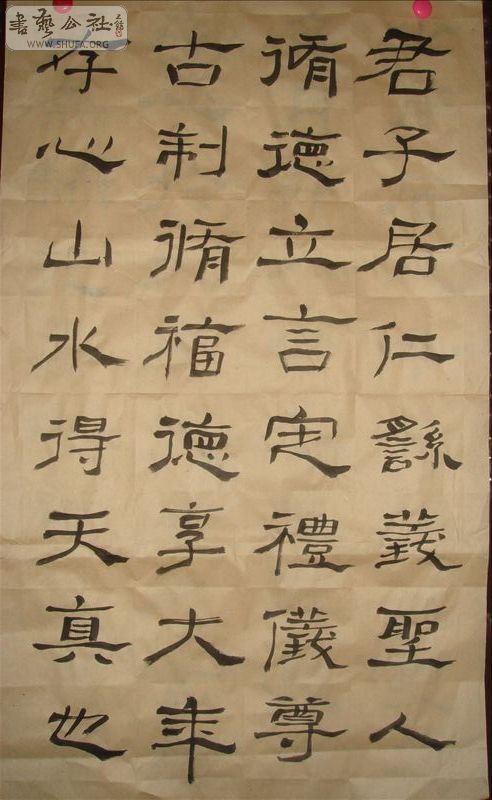 君子居仁繇義聖人
脩德立言定禮儀尊
古制脩福德享大年
好心山水得天真也
書藝公社
WWW.SHUFA.ORG